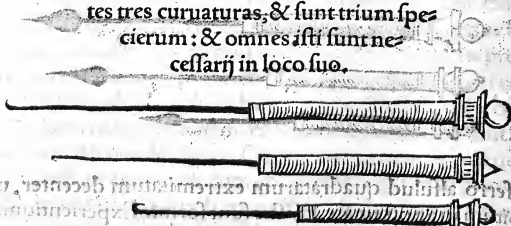 tes tres curuaturas, & sunt trium spe⸗
cierum: & omnes isti sunt ne⸗
cessarij in loco suo.